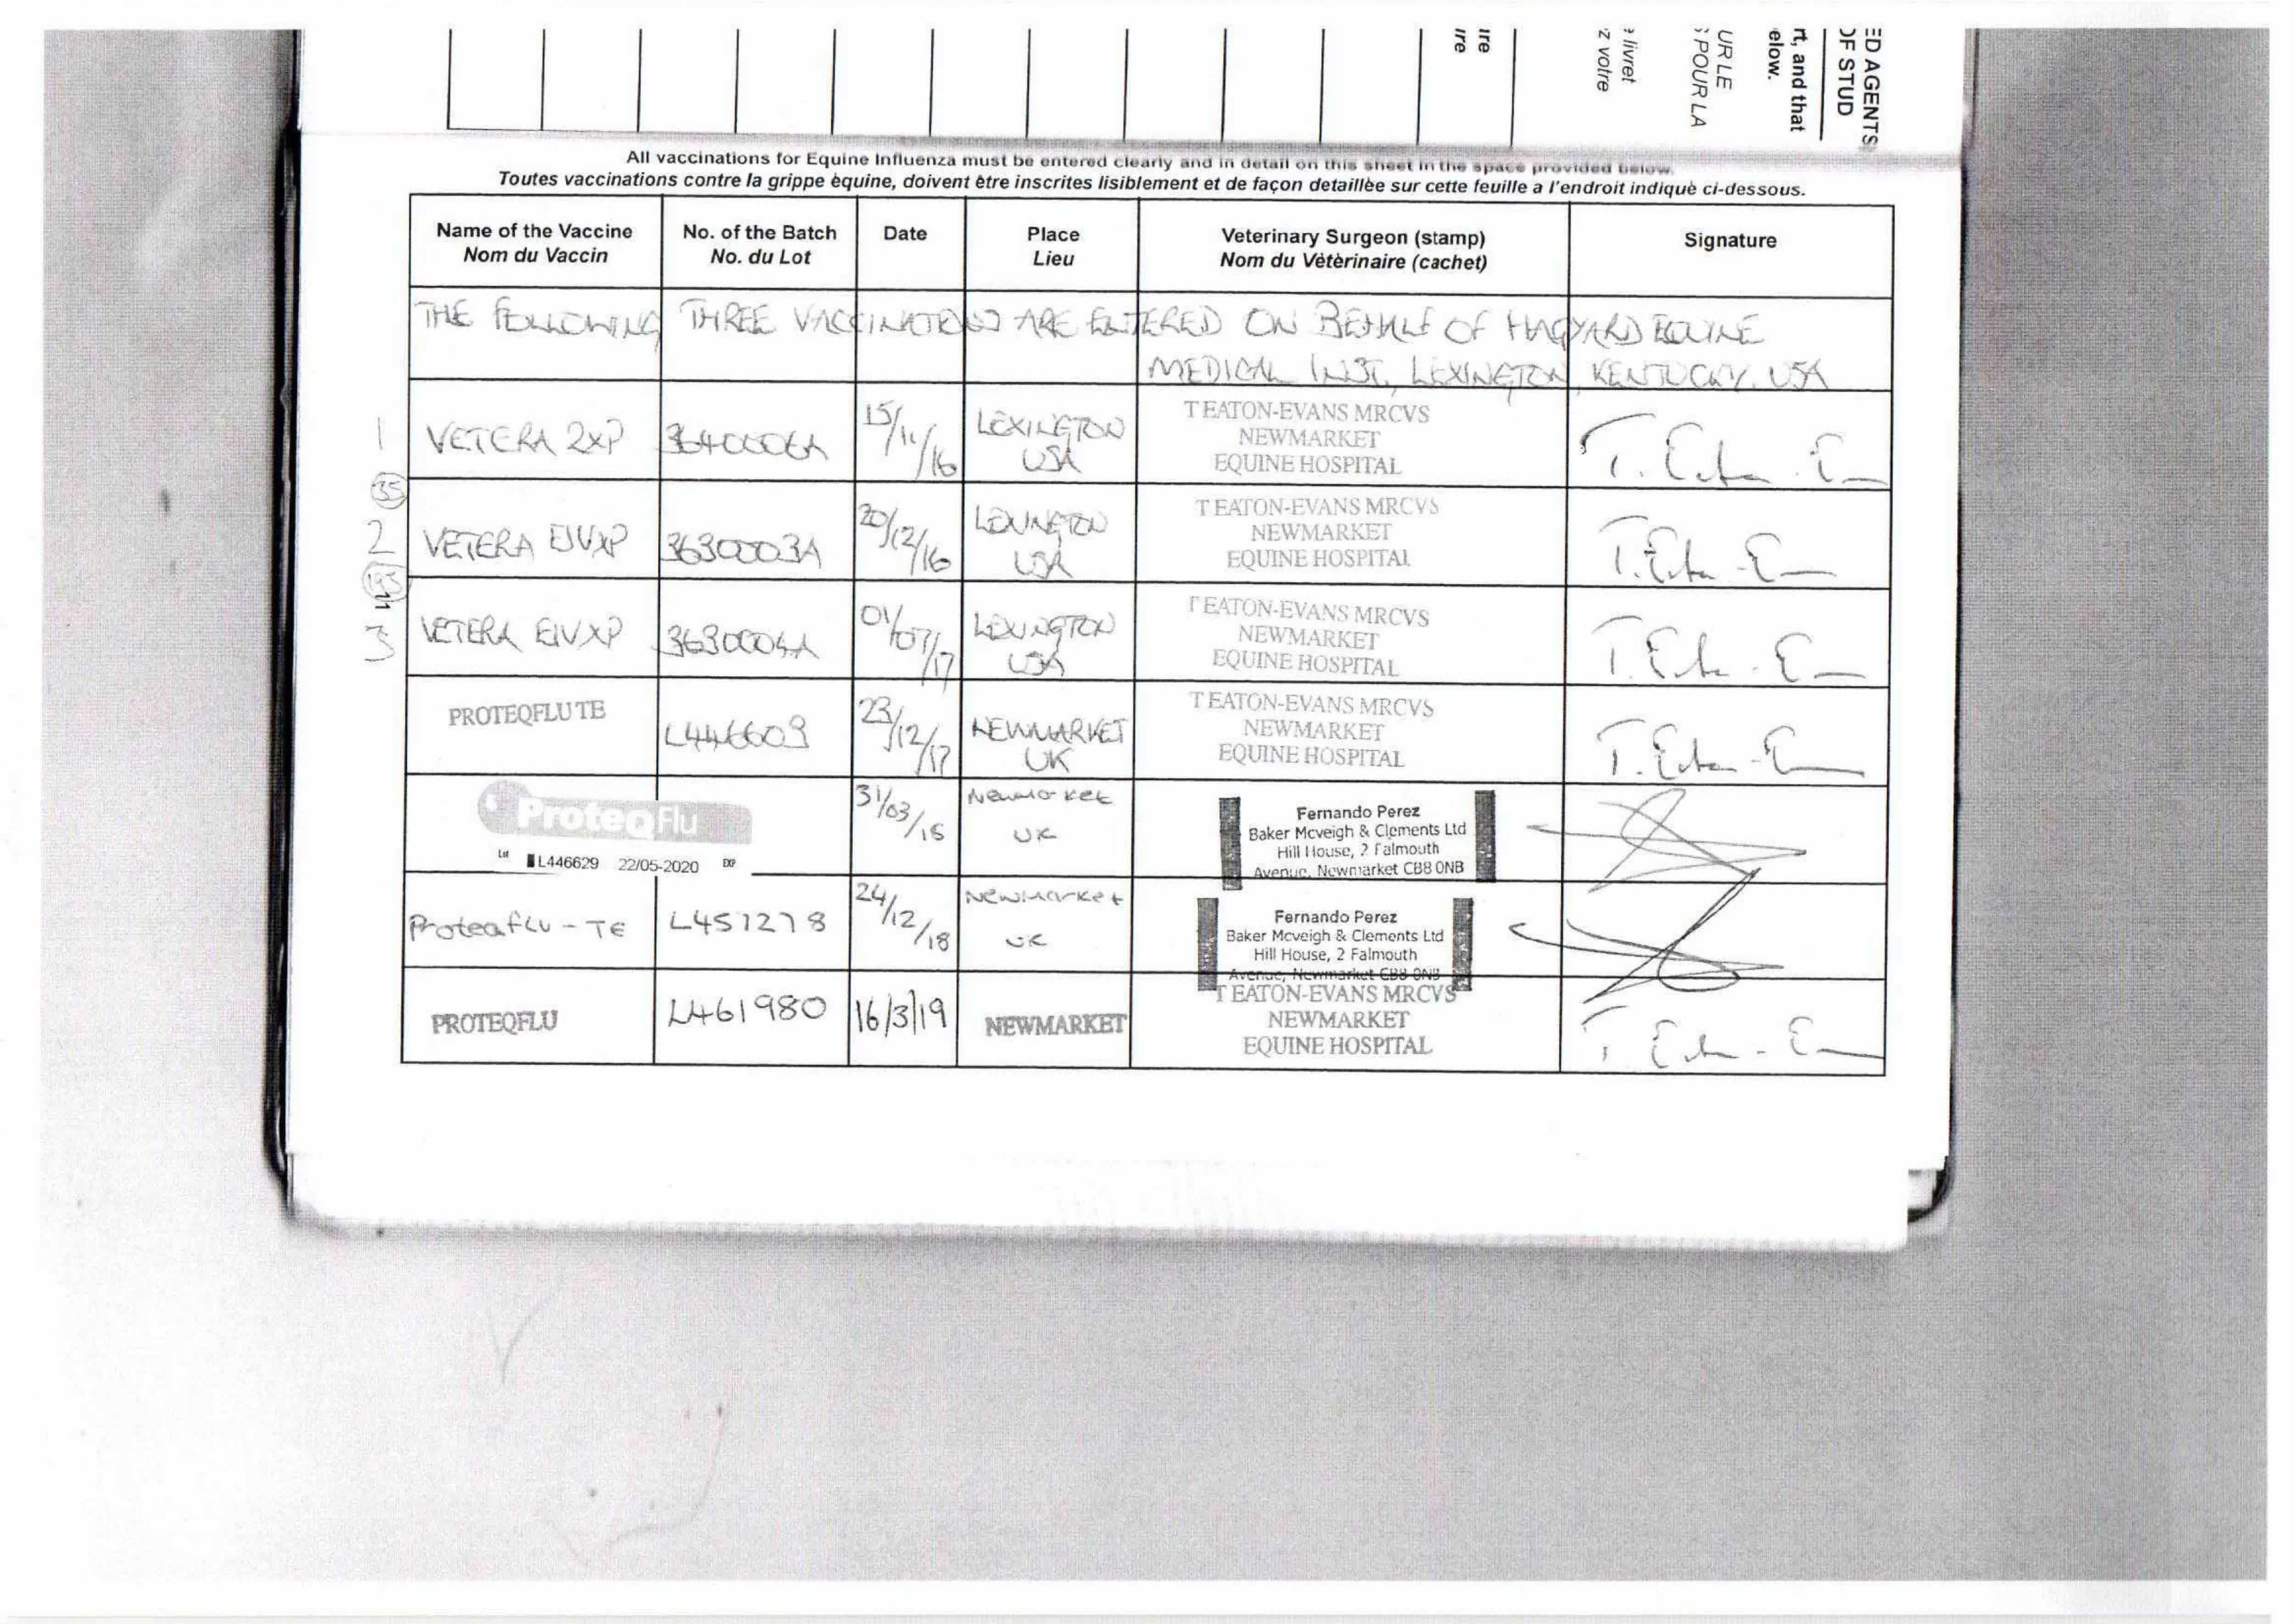 ED AGENTS
OF STUD
rt, and that
elow.
UR LE
S POUR LA
e livret
z votre
ire
ire
All vaccinations for Equine Influenza must be entered clearly and in detail on this sheet in the space provided below.
Toutes vaccinations contre la grippe èquine, doivent ètre inscrites lisiblement et de façon detaillèe sur cette feuille a l'endroit indiquè ci-dessous.
Name of the Vaccine No. of the Batch Date Place Veterinary Surgeon (stamp) Signature
Nom du Vaccin No. du Lot Lieu Nom du Vètèrinaire (cachet)
THE FOLLOWING THREE VACCINATIONS ARE ENTERED ON BEHALF OF HAGYARD EQUINE
MEDICAL INST, LEXINGTON, KENTUCKY, USA
1 VETERA 2XP 3640006A 15/11/16 LEXINGTON USA
T EATON-EVANS MRCVS
NEWMARKET
EQUINE HOSPITAL
T. Eaton-Evans
35
2 VETERA EIVXP 3630003A 20/12/16 LEXINGTON USA
T EATON-EVANS MRCVS
NEWMARKET
EQUINE HOSPITAL
T. Eaton-Evans
193
3 VETERA EIVXP 3630004A 01/07/17 LEXINGTON USA
T EATON-EVANS MRCVS
NEWMARKET
EQUINE HOSPITAL
T. Eaton-Evans
PROTEQFLU TE L446609 23/12/17 NEWMARKET UK
T EATON-EVANS MRCVS
NEWMARKET
EQUINE HOSPITAL
T. Eaton-Evans
ProteqFlu 31/03/18 Newmarket UK
Lot L446629 22/05-2020 EXP
Fernando Perez
Baker Mcveigh & Clements Ltd
Hill House, 2 Falmouth
Avenue, Newmarket CB8 0NB
Proteqflu-TE L451278 24/12/18 Newmarket UK
Fernando Perez
Baker Mcveigh & Clements Ltd
Hill House, 2 Falmouth
Avenue, Newmarket CB8 0NB
PROTEQFLU L461980 16/3/19 NEWMARKET
T EATON-EVANS MRCVS
NEWMARKET
EQUINE HOSPITAL
T. Eaton-Evans